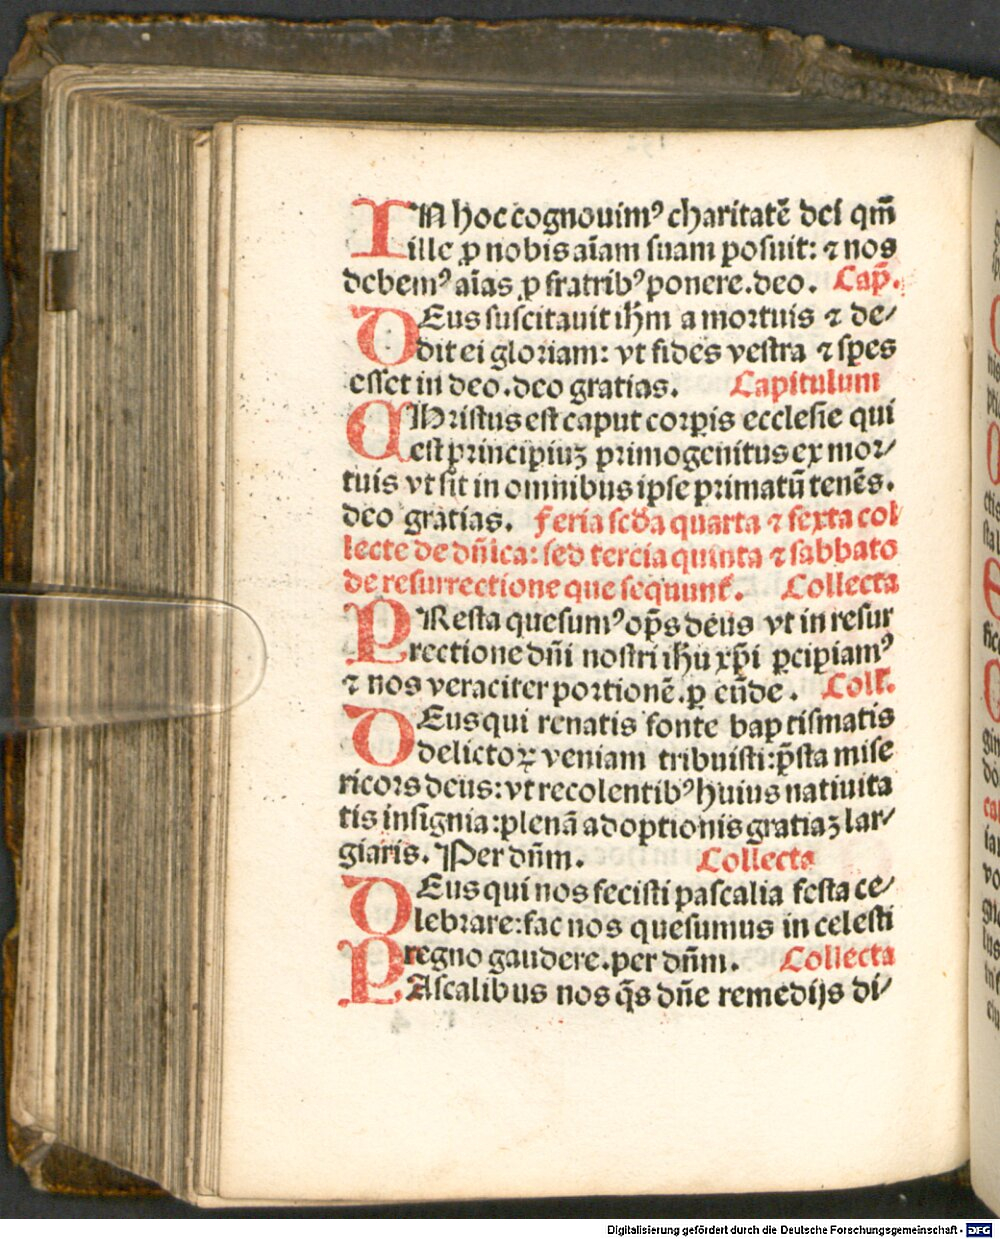 IN hoc cognouimꝰ charitatē dei qm̄
ille ꝓ nobis aīam suam posuit: ⁊ nos
debemꝰ aīas ꝓ fratribꝰ ponere. deo. Cap̄.
DEus suscitauit ih̄m a mortuis ⁊ de⸗
dit ei gloriam: vt fides vestra ⁊ spes
esset in deo. deo gratias. Capitulum
CHristus est caput corꝑis ecclesie qui
est principiuꝫ primogenitus ex mor⸗
tuis vt sit in omnibus ipse primatū tenēs.
deo gratias. Feria scd̄a quarta ⁊ sexta col
lecte de dn̄ica: sed tercia quinta ⁊ sabbato
de resurrectione que sequunt̄. Collecta
PResta quesumꝰ op̄s deus vt in resur
rectione dn̄i nostri ih̄u xp̄i ꝑcipiamꝰ
⁊ nos veraciter portionē. ꝑ eūde. Coll̄.
DEus qui renatis fonte baptismatis
delictoꝝ veniam tribuisti: p̄sta mise
ricors deus: vt recolentibꝰ huius natiuita
tis insignia: plenā adoptionis gratiaꝫ lar⸗
giaris. Per dn̄m. Collecta
DEus qui nos fecisti pascalia festa ce⸗
lebrare: fac nos quesumus in celesti
regno gaudere. per dn̄m. Collecta
PAscalibus nos q̄s dn̄e remedijs di⸗
Digitalisierung gefördert durch die Deutsche Forschungsgemeinschaft - DFG